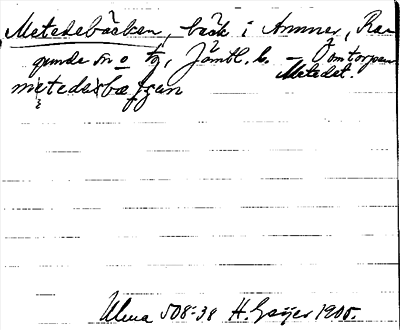 Metedebäcken, bäck i Ammer, Ra-
gunda sn o 
Jämtl. l. — Ö om torpen
Metedet.
Ulma 508:38 H. Geijer 1905.